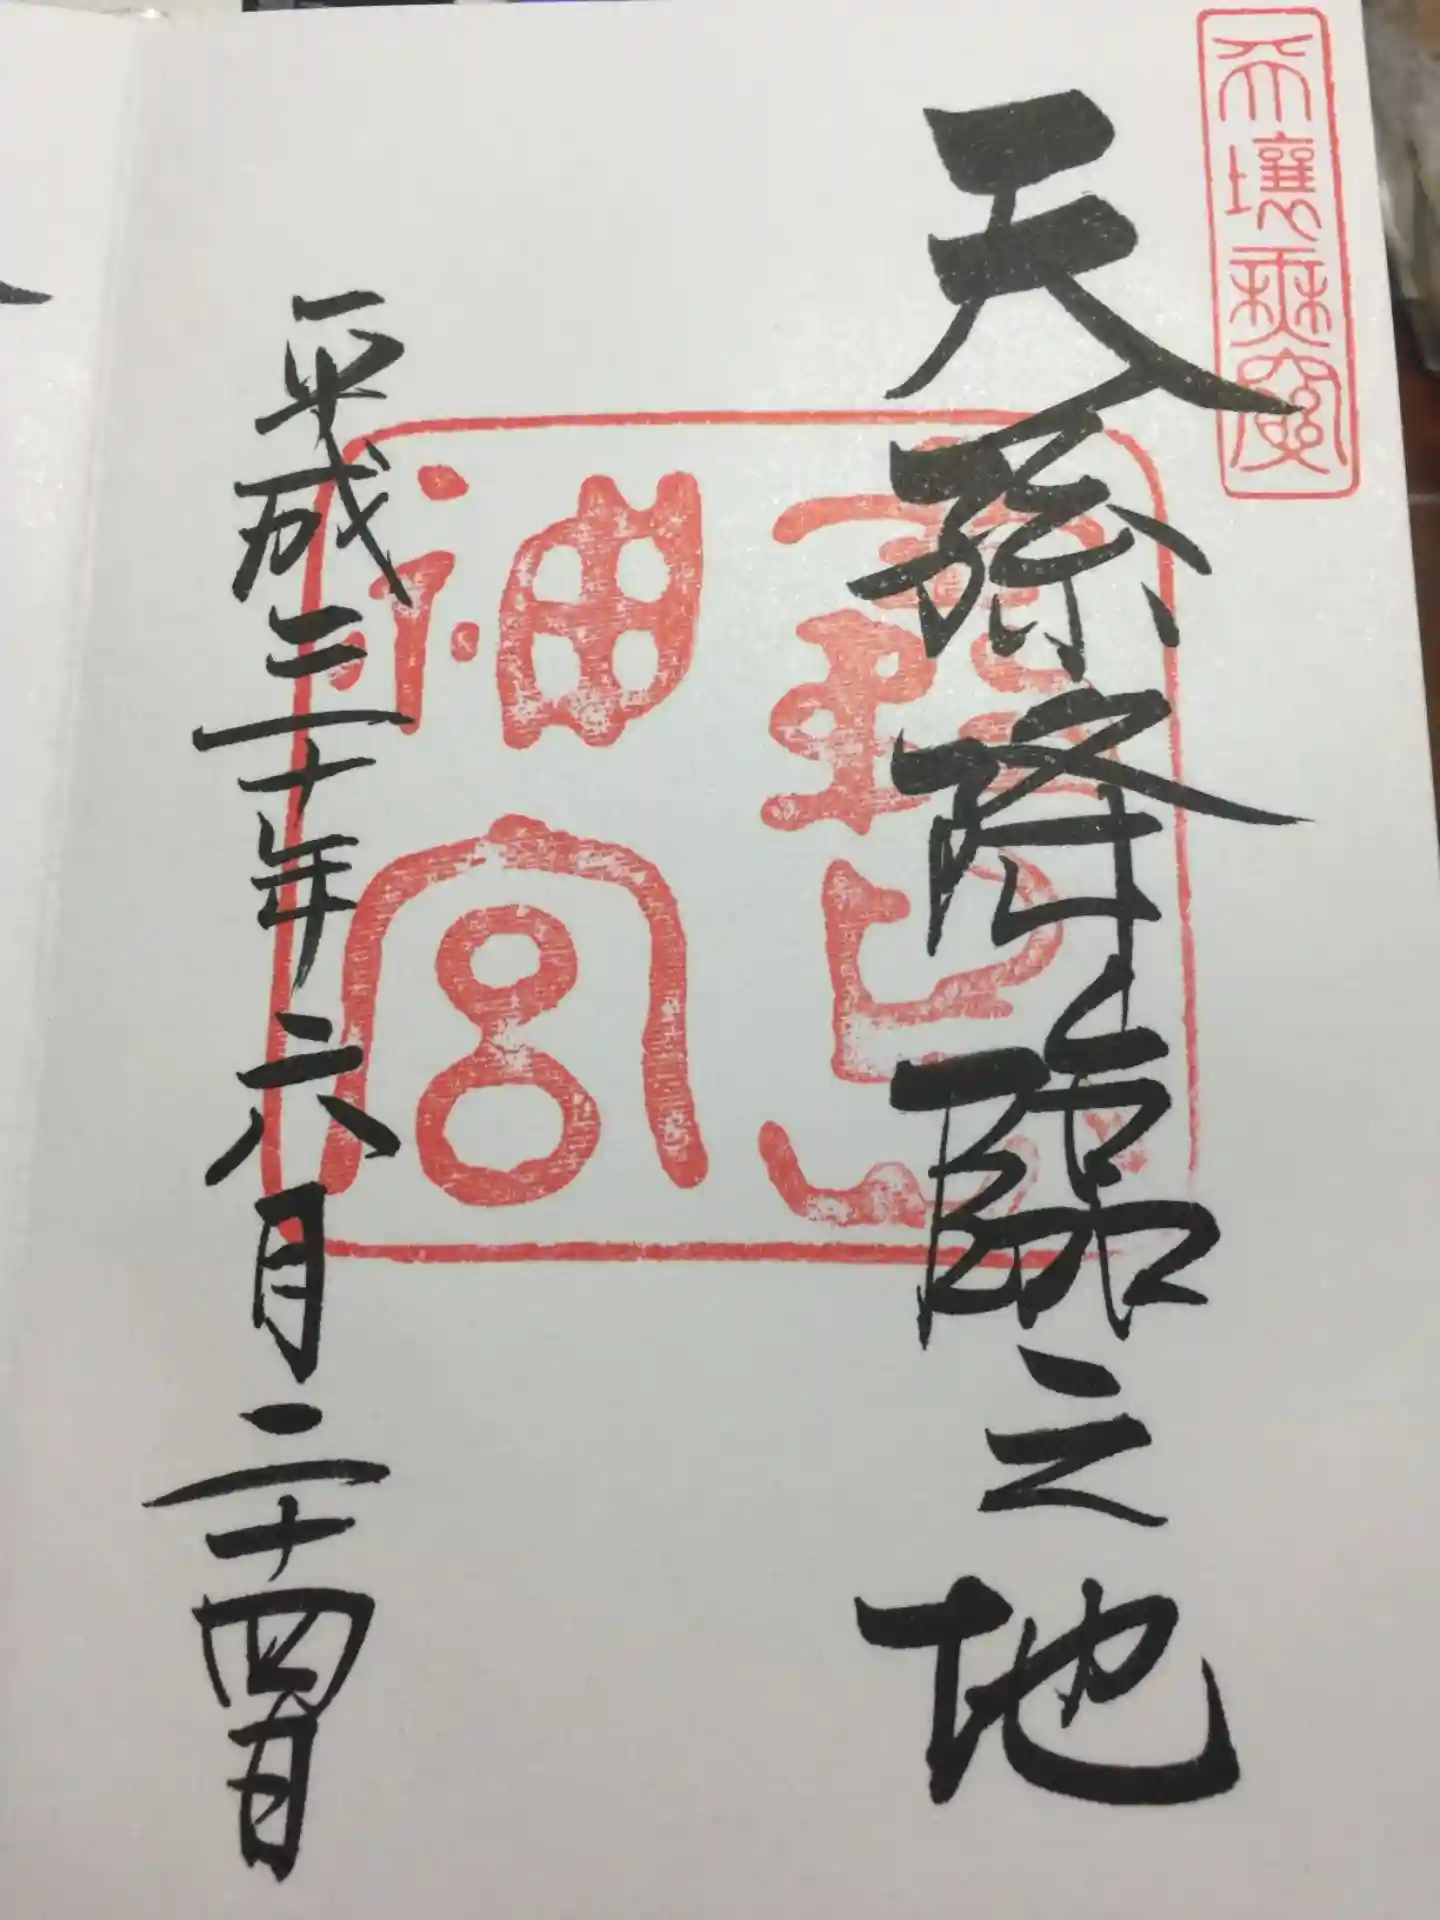 天壤無窮
天孫降臨之地
霧島
神宮
平成三十年六月二十四日